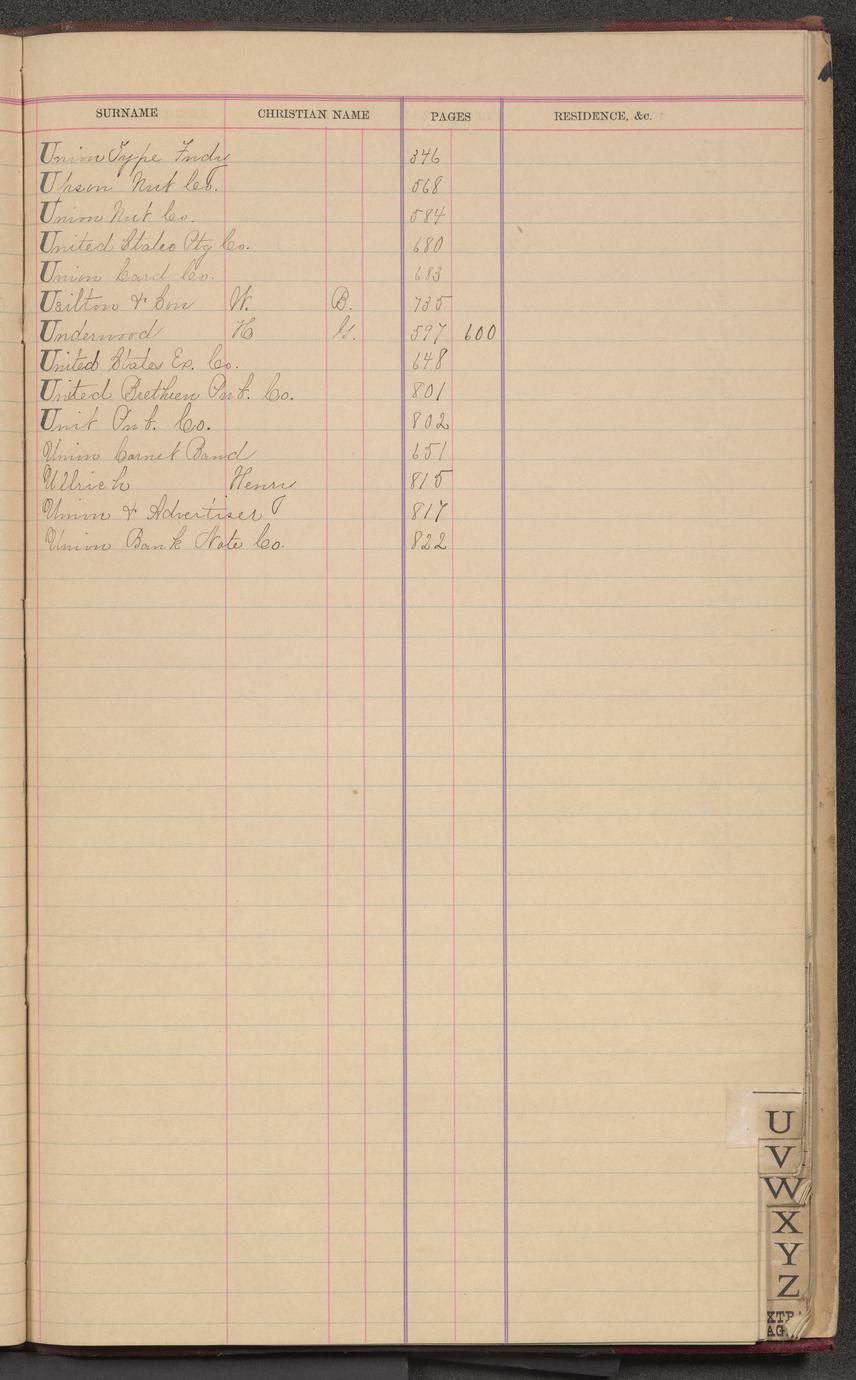 SURNAME CHRISTIAN NAME PAGES RESIDENCE, &c.
Union Type Fndy 346
Upson Nut Co. 568
Union Nut Co. 584
United States Ptg Co. 680
Union Card Co. 683
& Son W. B. 735
Underwood H G. 597 600
United States Ex. Co. 648
United Brethren Pub. Co. 801
Unit Pub. Co. 802
Union Cornet Band 651
Ullrich Henry 815
Union & Advertiser 817
Union Bank Note Co. 822
U
V
W
X
Y
Z